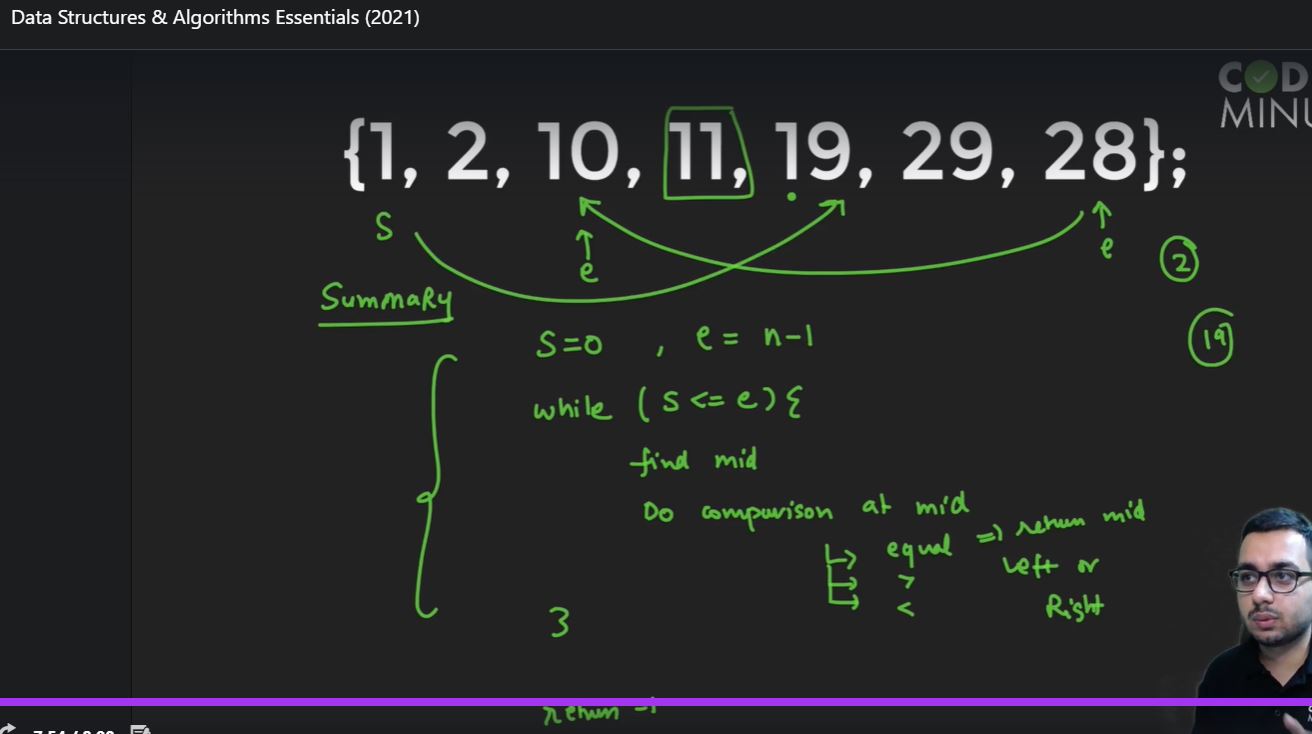 Data Structures & Algorithms Essentials (2021)
COD
MINU
{1, 2, 10, 11, 19, 29, 28};
S
e
e
2
Summary
19
S=0 , e = n-1
while (s <= e) {
find mid
Do comparison at mid
equal => return mid
> Left or
< Right
}
return -1